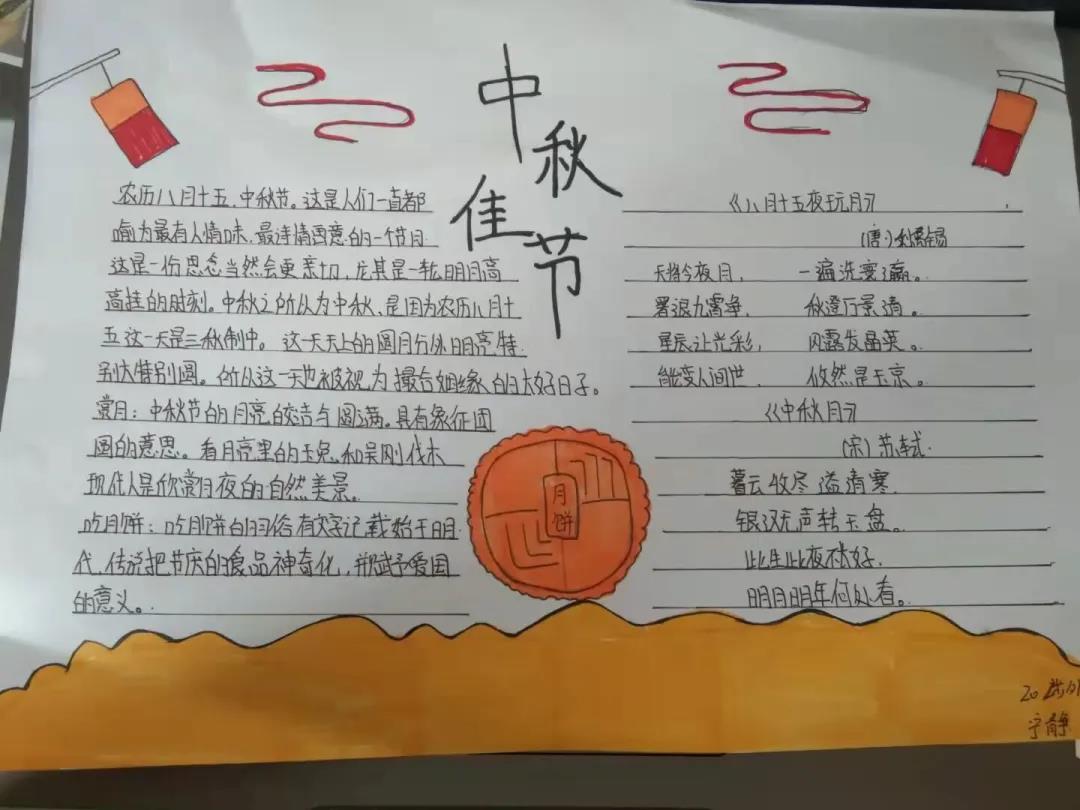 中秋佳节
农历八月十五,中秋节。这是人们一直都
喻为最有人情味,最诗情画意的一个节日
这是一份思念当然会更亲切,尤其是一轮明月高
高挂的时刻。中秋之所以为中秋,是因为农历八月十
五这一天是三秋制中。这一天天上的圆月分外明亮特
别大特别圆。所以这一天也被视为撮合姻缘的大好日子。
赏月:中秋节的月亮的皎洁与圆满。具有象征团
圆的意思。看月亮里的玉兔和吴刚伐木
现代人是欣赏月夜的自然美景。
吃月饼:吃月饼的习俗有文字记载始于明
代,传说把节庆的食品神奇化,并赋予爱国
的意义。
月饼
《八月十五夜玩月》
(唐)刘禹锡
天将今夜月, 一遍洗寰瀛。
署退九霄净, 秋澄万景清。
星辰让光彩, 风露发晶英。
能变人间世, 攸然是玉京。
《中秋月》
(宋)苏轼
暮云收尽溢清寒
银汉无声转玉盘。
此生此夜不长好
明月明年何处看。
宁静